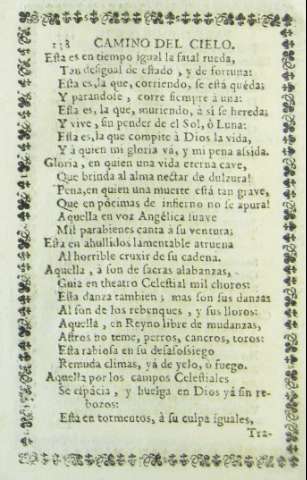 138 CAMINO DEL CIELO.
Esta es en tiempo igual la fatal rueda,
Tan desigual de estado, y de fortuna:
Esta es, la que, corriendo, se está quéda;
Y parandole, corre siempre à una:
Esta es, la que, muriendo, à sì se hereda;
Y vive, sin pender de el Sol, ó Luna:
Esta es, la que compite à Dios la vida,
Y à quien mi gloria và, y mi pena assida.
Gloria, en quien una vida eterna cave,
Que brinda al alma nectar de dulzura!
Pena, en quien una muerte está tan grave,
Que en pòcimas de infierno no se apura!
Aquella en voz Angélica suave
Mil parabienes canta à su ventura;
Esta en ahullidos lamentable atruena
Al horrible cruxir de su cadena.
Aquella, à son de sacras alabanzas,
Guia en theatro Celestial mil choros:
Esta danza tambien; mas son sus danzas
Al son de los rebenques, y sus lloros:
Aquella, en Reyno libre de mudanzas,
Astros no teme, perros, cancros, toros:
Esta rabiosa en su desasossiego
Remuda climas, yá de yelo, ò fuego.
Aquella por los campos Celestiales
Se espácia, y huelga en Dios yá sin re-
bozos:
Esta en tormentos, à su culpa iguales,
Tra-